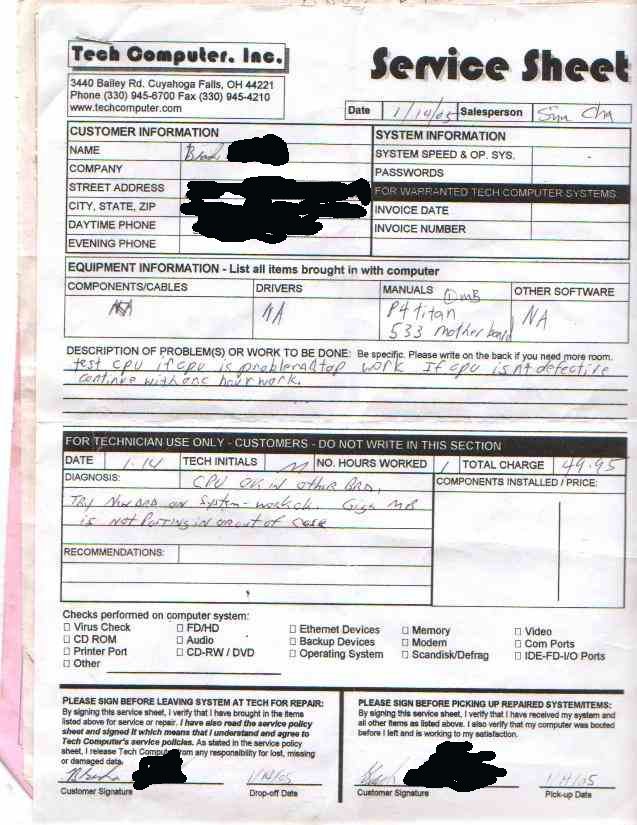 Tech Computer. Inc.
Service Sheet
3440 Bailey Rd. Cuyahoga Falls, OH 44221
Phone (330) 945-6700 Fax (330) 945-4210
www.techcomputer.com
Date 1/14/05 Salesperson
CUSTOMER INFORMATION
NAME
COMPANY
STREET ADDRESS
CITY, STATE, ZIP
DAYTIME PHONE
EVENING PHONE
SYSTEM INFORMATION
SYSTEM SPEED & OP. SYS. -
PASSWORDS
FOR WARRANTED TECH COMPUTER SYSTEMS
INVOICE DATE
INVOICE NUMBER
EQUIPMENT INFORMATION - List all items brought in with computer
COMPONENTS/CABLES DRIVERS MANUALS OTHER SOFTWARE
NA NA ① MB NA
P4 titan
533 Motherboard
DESCRIPTION OF PROBLEM(S) OR WORK TO BE DONE: Be specific. Please write on the back if you need more room.
test cpu if cpu is problem stop work If cpu isnt defective
continue with one hour work.
FOR TECHNICIAN USE ONLY - CUSTOMERS - DO NOT WRITE IN THIS SECTION
DATE 1-14 TECH INITIALS NO. HOURS WORKED 1 TOTAL CHARGE 49.95
DIAGNOSIS: CPU OK IN other BRD,
Try New BRD on System - works ok. Giga MB
is not Posting in or out of case
COMPONENTS INSTALLED / PRICE:
RECOMMENDATIONS:
Checks performed on computer system:
Virus Check FD/HD Ethernet Devices Memory Video
CD ROM Audio Backup Devices Modem Com Ports
Printer Port CD-RW / DVD Operating System Scandisk/Defrag IDE-FD-I/O Ports
Other
PLEASE SIGN BEFORE LEAVING SYSTEM AT TECH FOR REPAIR:
By signing this service sheet, I verify that I have brought in the items
listed above for service or repair. I have also read the service policy
sheet and signed it which means that I understand and agree to
Tech Computer's service policies. As stated in the service policy
sheet, I release Tech Computer from any responsibility for lost, missing
or damaged data.
1/14/05
Customer Signature Drop-off Date
PLEASE SIGN BEFORE PICKING UP REPAIRED SYSTEM/ITEMS:
By signing this service sheet, I verify that I have received my system and
all other items as listed above. I also verify that my computer was booted
before I left and is working to my satisfaction.
1/14/05
Customer Signature Pick-up Date